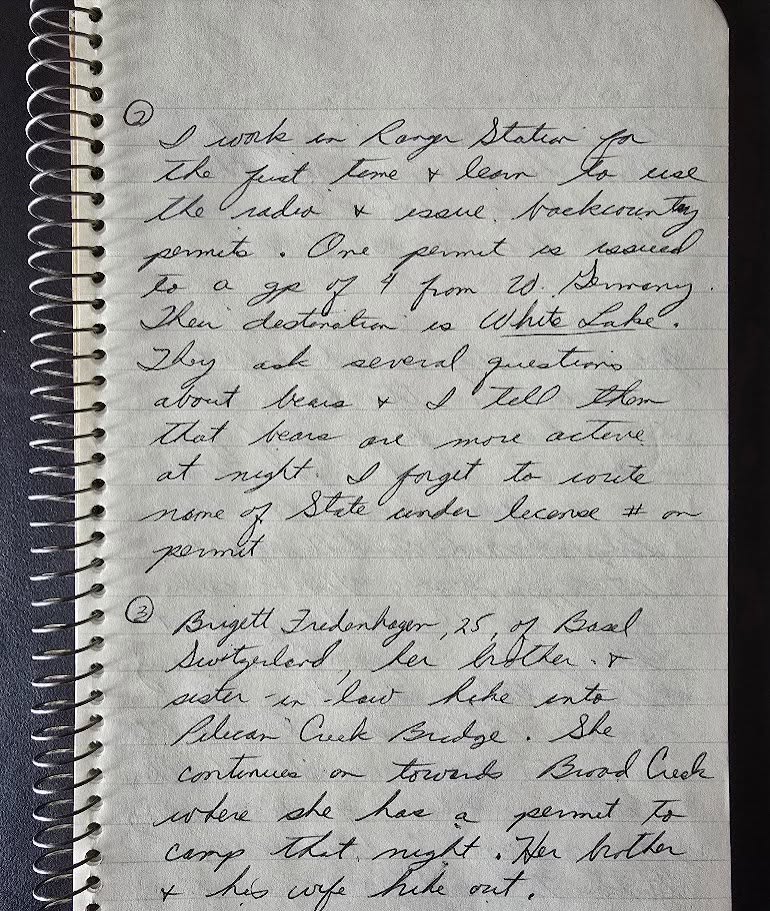 ②
I work in Ranger Station for
the first time & learn to use
the radio & issue backcountry
permits. One permit is issued
to a gp of 4 from W. Germany.
Their destination is White Lake.
They ask several questions
about bears & I tell them
that bears are more active
at night. I forget to write
name of State under license # on
permit
③ Brigett Fredenhagen, 25, of Basel
Switzerland, her brother &
sister-in-law hike into
Pelican Creek Bridge. She
continues on towards Broad Creek
where she has a permit to
camp that night. Her brother
& his wife hike out.